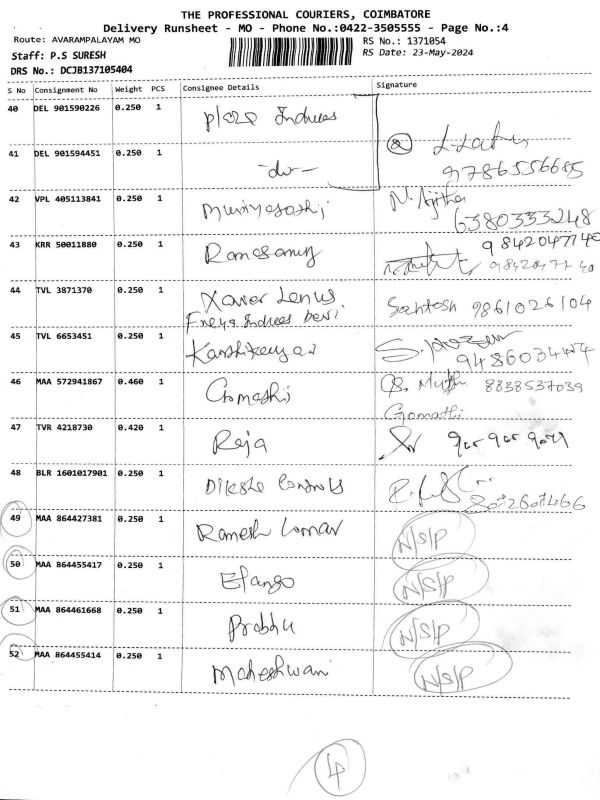 THE PROFESSIONAL COURIERS, COIMBATORE
Delivery Runsheet - MO - Phone No.:0422-3505555 - Page No.:4
Route: AVARAMPALAYAM MO
RS No.: 1371054
Staff: P.S SURESH
RS Date: 23-May-2024
DRS No.: DCJB137105404
S No Consignment No Weight PCS Consignee Details Signature
40 DEL 901590226 0.250 1
41 DEL 901594451 0.250 1 9786556685
42 VPL 405113841 0.250 1 N. Ajitha
6380333248
43 KRR 50011880 0.250 1 Ramasamy 9842047740
9842047740
44 TVL 3871370 0.250 1 Santosh 9861026104
45 TVL 6653451 0.250 1 Karthikeyan
46 MAA 572941867 0.460 1 Gomathi 8838537039
Gomathi
47 TVR 4218730 0.420 1 Raja
48 BLR 1601017901 0.250 1
49 MAA 864427381 0.250 1 Ramesh Kumar N/S/P
50 MAA 864455417 0.250 1 Elango N/S/P
51 MAA 864461668 0.250 1 Prabhu N/S/P
52 MAA 864455414 0.250 1 Maheshwari N/S/P
4